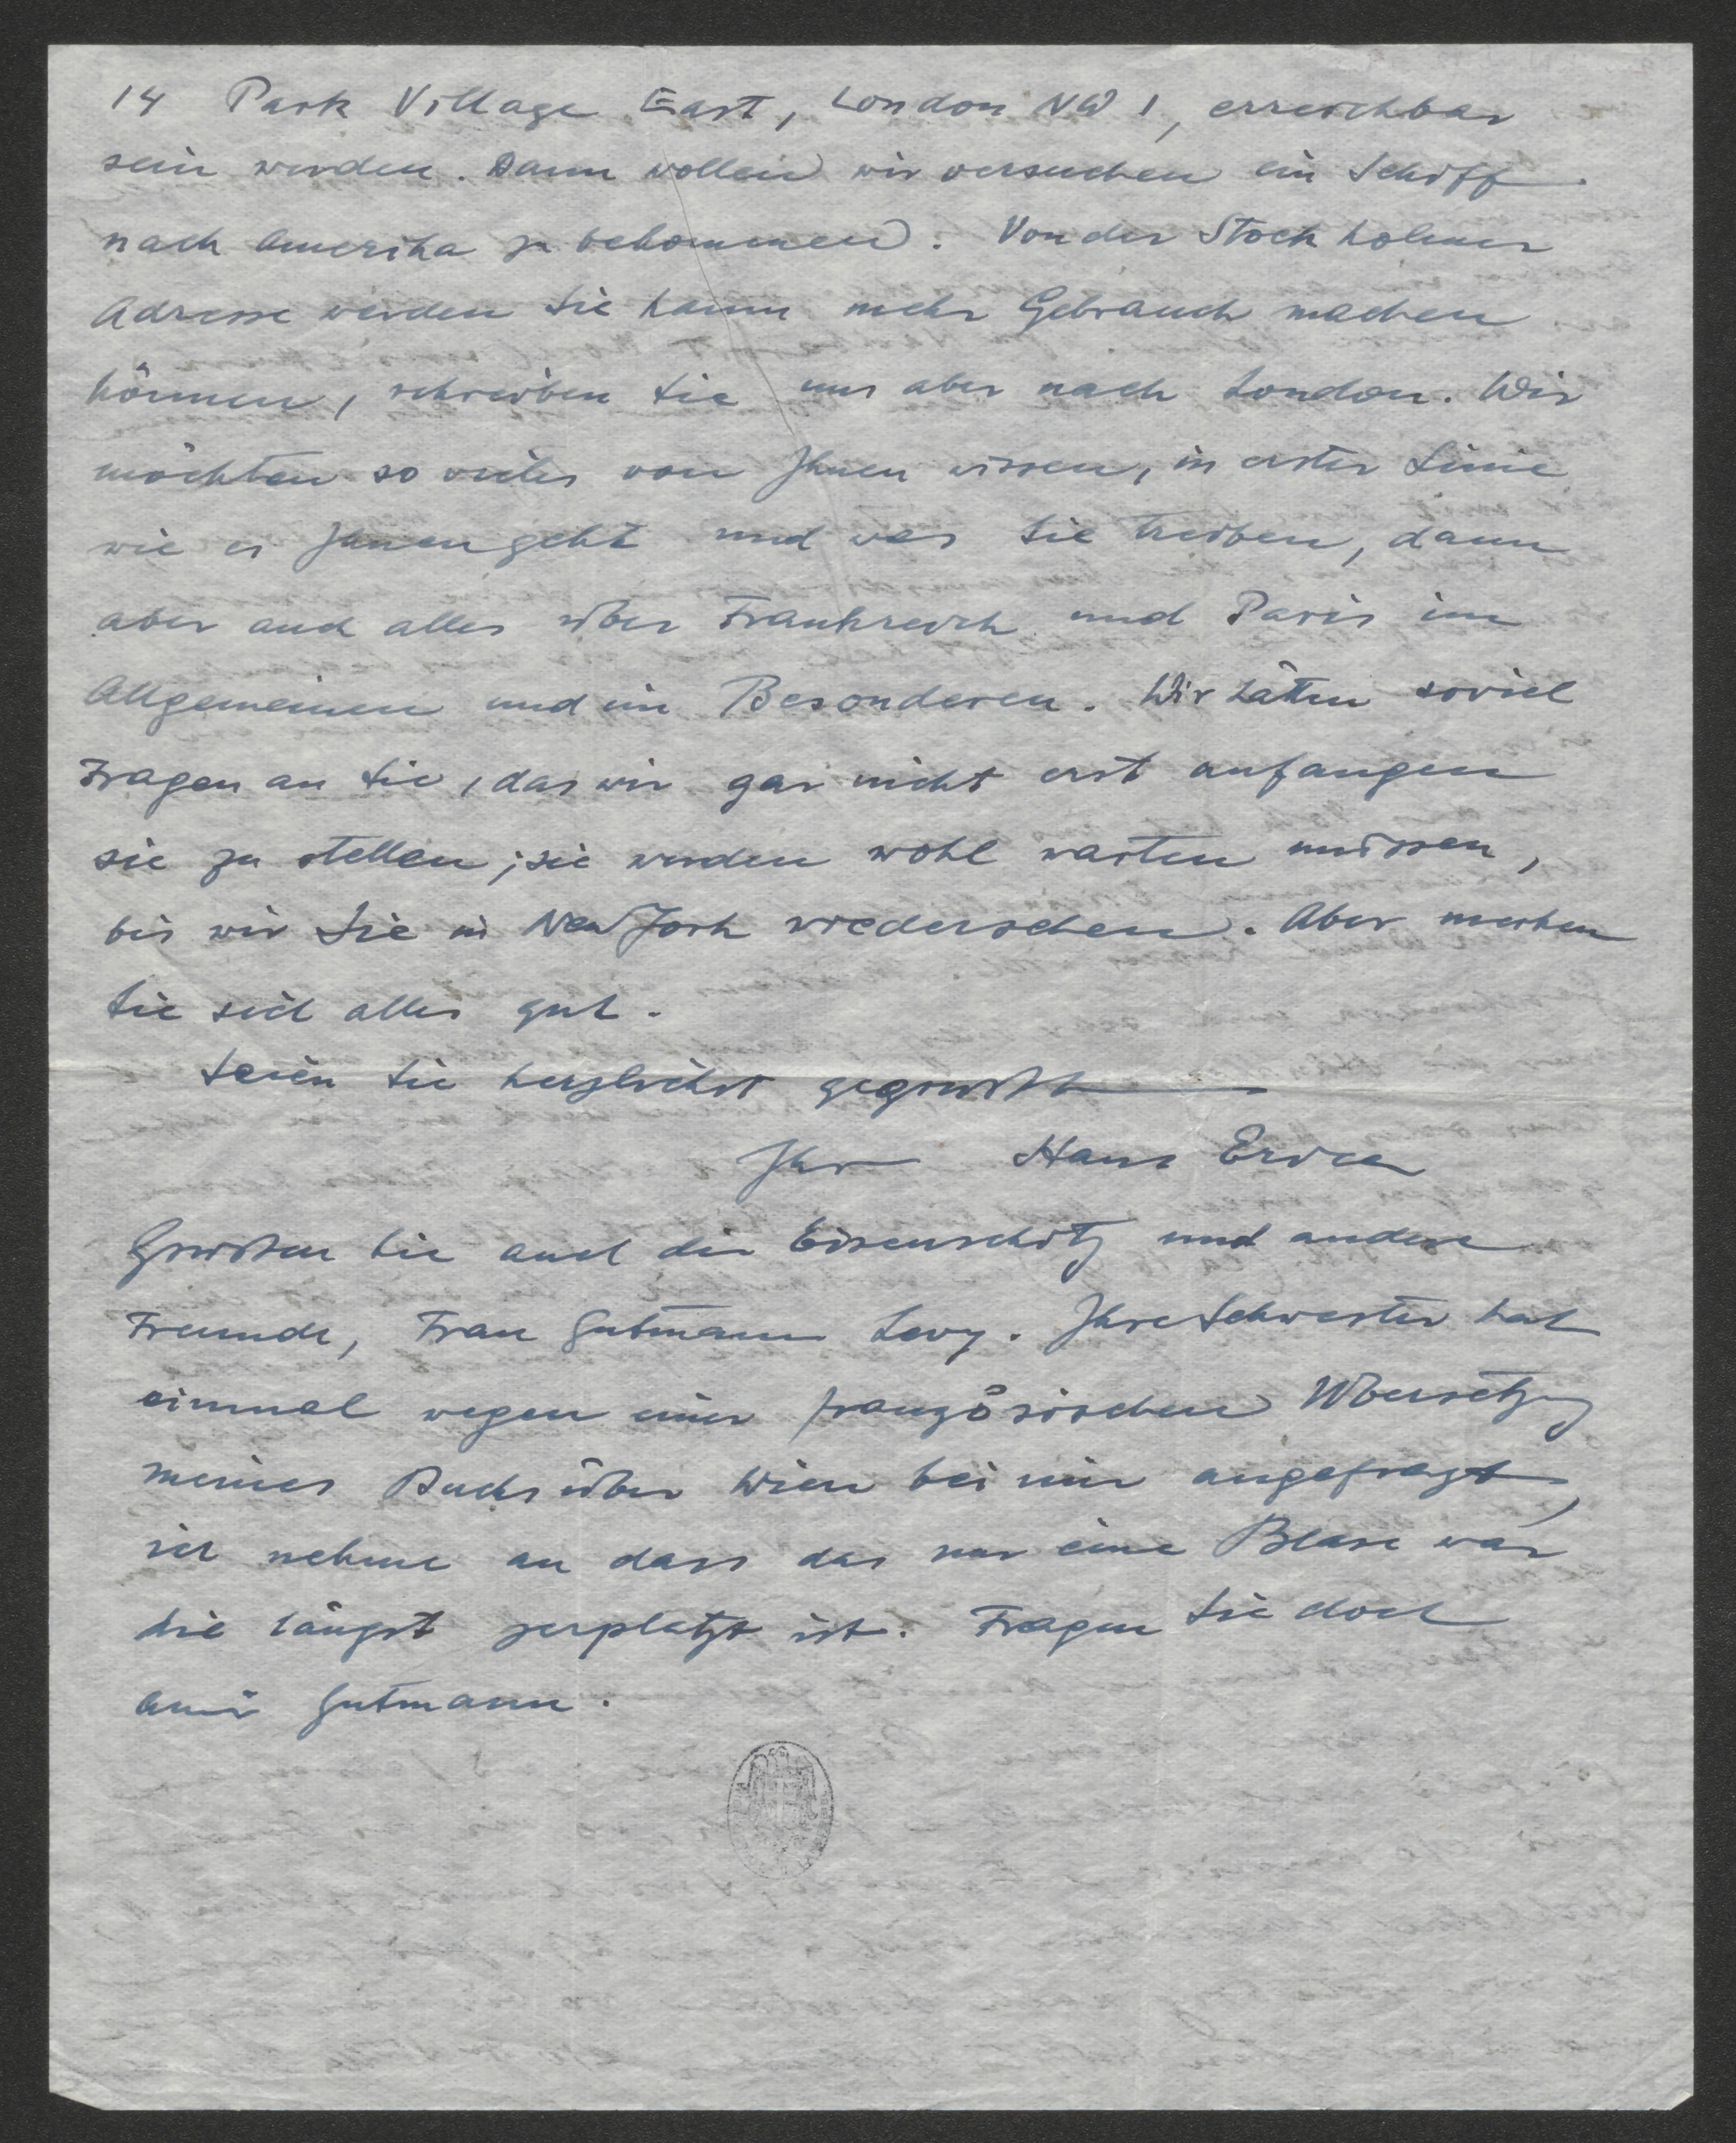 14 Park Village East, London NW 1, erreichbar
sein werden. Dann wollen wir versuchen ein Schiff
nach Amerika zu bekommen. Von der Stockholmer
Adresse werden Sie kaum mehr Gebrauch machen
können, schreiben Sie uns aber nach London. Wir
möchten so vieles von Ihnen wissen, in erster Linie
wie es Ihnen geht und was Sie treiben, dann
aber auch alles über Frankreich und Paris im
Allgemeinen und im Besonderen. Wir hätten soviel
Fragen an Sie, das wir gar nicht erst anfangen
sie zu stellen; sie werden wohl warten müssen,
bis wir Sie in New York wiedersehen. Aber merken
Sie sich alles gut.
Seien Sie herzlichst gegrüßt
Ihr Hans Erica
Grüßen Sie auch die Eisenschitz und andere
Freunde, Frau Gutmann Levy. Ihre Schwester hat
einmal wegen einer französischen Übersetzung
meines Buchs über Wien bei mir angefragt,
ich nehme an dass das nur eine Blase war
die längst zerplatzt ist. Fragen Sie doch
Gutmann.